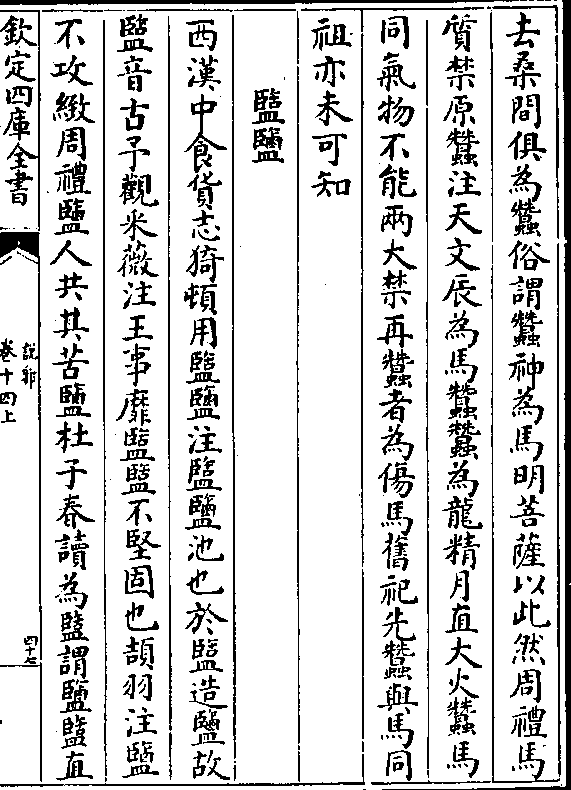 去桑間俱為蠶俗謂蠶神為馬明菩薩以此然周禮馬
質禁原蠶注天文辰為馬蠶蠶為龍精月直大火蠶馬
同氣物不能兩大禁再蠶者為傷馬舊祀先蠶與馬同
祖亦未可知
盬鹽
西漢中食貨志猗頓用盬鹽注盬鹽池也於盬造鹽故
盬音古予觀采薇注王事靡盬盬不堅固也頡羽注盬
不攻緻周禮鹽人共其苦鹽杜子春讀為盬謂鹽盬直
欽定四庫全書
說郛
卷十四上
四十七